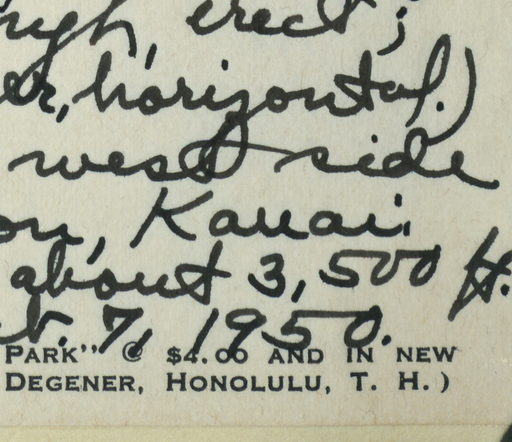 ugh, erect;
er, horizontal.)
west side
on, Kauai.
about 3,500 ft.
7, 1950.
PARK" @ $4.00 AND IN NEW
DEGENER, HONOLULU, T. H.)